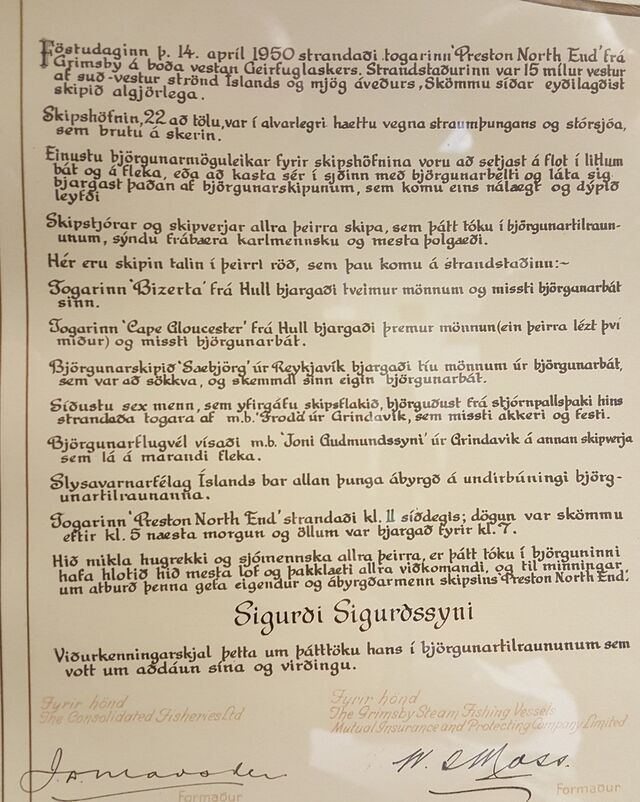 Föstudaginn þ. 14. apríl 1950 strandaði togarinn 'Preston North End' frá
Grimsby á boða vestan Geirfuglaskers. Strandstaðurinn var 15 mílur vestur
af suð-vestur strönd Íslands og mjög áveðurs, Skömmu síðar eyðilagðist
skipið algjörlega.
Skipshöfnin, 22 að tölu, var í alvarlegri haettu vegna straumþungans og stórsjóa,
sem brutu á skerin.
Einustu björgunarmöguleikar fyrir skipshöfnina voru að setjast á flot í litlum
bát og á fleka, eða að kasta sér í sjóinn með björgunarbelti og láta sig
bjargast þaðan af björgunarskipunum, sem komu eins nálaegt og dýpið
leyfði
Skipstjórar og skipverjar allra þeirra skipa, sem þátt tóku í björgunartilraun-
unum, sýndu frábaera karlmennsku og mesta þolgaeði.
Hér eru skipin talin í þeirri röð, sem þau komu á strandstaðinn:~
Togarinn 'Bizerta' frá Hull bjargaði tveimur mönnum og missti björgunarbát
sinn.
Togarinn 'Cape Gloucester' frá Hull bjargaði þremur mönnun (ein þeirra lézt því
miður) og missti björgunarbát.
Björgunarskipið 'Saebjörg' úr Reykjavík bjargaði tíu mönnum úr björgunarbát,
sem var að sökkva, og skemmdi sinn eigin björgunarbát.
Síðustu sex menn, sem yfirgáfu skipsflakið, björguðust frá stjórnpallsþaki hins
strandaða togara af m.b. 'Fróða' úr Grindavík, sem missti akkeri og festi.
Björgunarflugvél vísaði m.b. 'Joni Gudmundssyni' úr Grindavik á annan skipverja
sem lá á marandi fleka.
Slysavarnarfélag Íslands bar allan þunga ábyrgð á undirbúningi björg-
unartilraunanna.
Togarinn 'Preston North End' strandaði kl. 11 síðdegis; dögun var skömmu
eftir kl. 5 naesta morgun og öllum var bjargað fyrir kl. 7.
Hið mikla hugrekki og sjómennska allra þeirra, er þátt tóku í björguninni
hafa hlotið hið mesta lof og þakklaeti allra viðkomandi, og til minningar
um atburð þenna gefa eigendur og ábyrgðarmenn skipsins 'Preston North End',
Sigurði Sigurðssyni
Viðurkenningarskjal þetta um þátttöku hans í björgunartilraununum sem
vott um aðdáun sína og virðingu.
Fyrir hönd
The Consolidated Fisheries Ltd
Formaður
Fyrir hönd
The Grimsby Steam Fishing Vessels
Mutual Insurance and Protecting Company Limited
W. S Moss.
Formaður